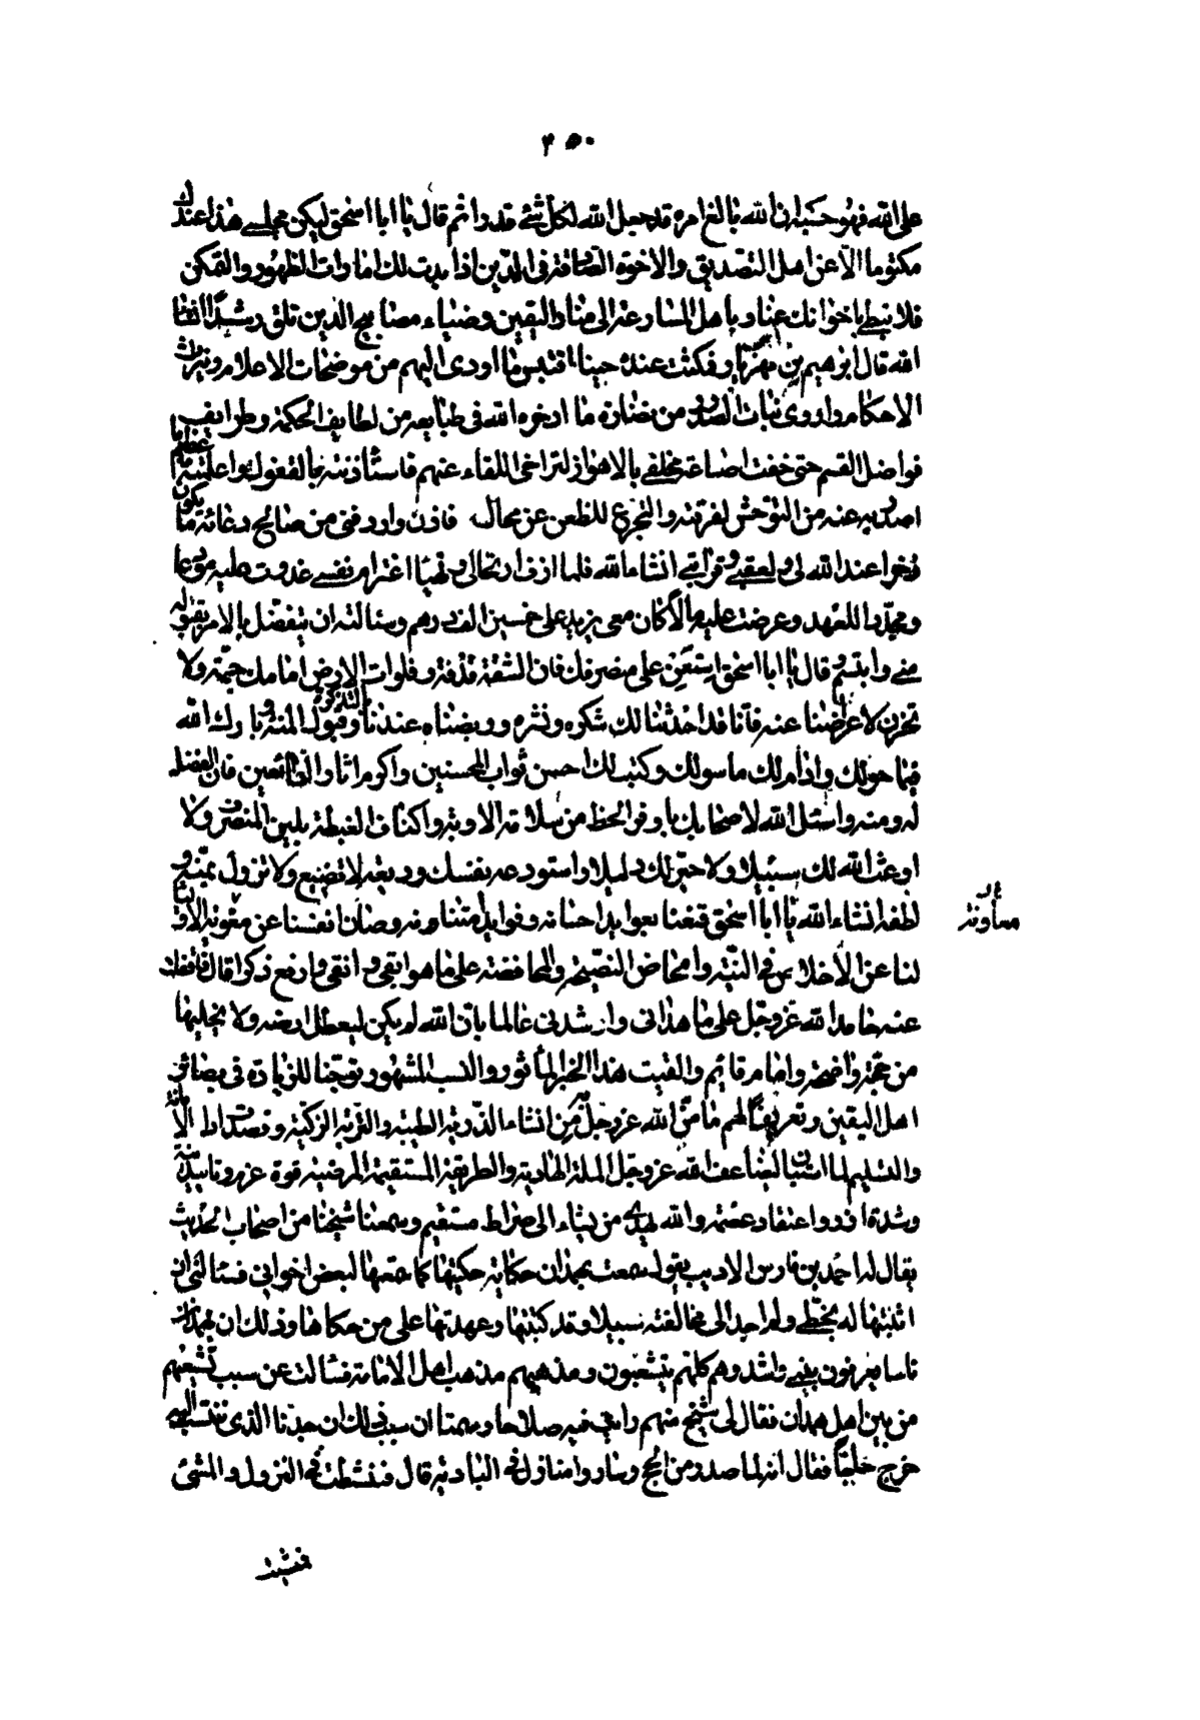 ٢٥٠
على الله فهو حسبه ان الله بالغ امره قد جعل الله لكل شئ قدرا ثم قال يا ابا اسحق ليكن مجلسي هذا عندك
مكتوما الا عن اهل التصديق والاخوة الصادقة فى الدين اذا بدت لك امارات الظهور والتمكن
فلا تبطى باخوانك عنا وباهل المسارعة الى منار اليقين وضياء مصابيح الدين تلق رشدا انشاء
الله قال ابرهيم بن مهزيار فمكثت عنده حينا اقتبس ما اودى اليهم من موضحات الاعلام ونيرات
الاحكام واروى نبات الصدور من نضارة ما ادخره الله فى طبايعه من لطايف الحكمة وطرايف
فواضل القسم حتى خفت اضاعة مخلفى بالاهواز لتراخى اللقاء عنهم فاستاذنته بالقفول واعلمته عظيم ما
اصدر به عنه من التوحش لفرقته والتجرع للظعن عن محاله فاذن واردفنى من صالح دعائه ما يكون
ذخرا عند الله لى ولعقبى وقرابتى انشاء الله فلما ازف ارتحالى وتهيا اعتزام نفسى غدوت عليه مودعا
ومجددا للعهد وعرضت عليه مالا كان معى يزيد على خمسين الف درهم وسئالته ان يتفضل بالامر بقبوله
منى وابتسم وقال يا ابا اسحق استعن على منصرفك فان الشقة قذفة وفلوات الارض امامك جمة ولا
تحزن لاعراضنا عنه فانا قد احدثنا لك شكره ونشره وربضناه عندنا بالتذكرة وقبول المنة وبارك الله
فيما خولك وادام لك ما سولك وكتب لك احسن ثواب المحسنين واكرم اثار الطائعين فان الفضل
له ومنه واسئل الله لاصحابك باوفر الحظ من سلامة الاوبة واكناف الغبطة بلين المنصرف ولا
اوعث الله لك سبيلا ولا حير لك دليلا واستودعه نفسك وديعة لا تضيع ولا تزول بمنه و
لطفه انشاء الله يا ابا اسحق قنعنا بعوايد احسانه وفوايد امتنانه وصان انفسنا عن معونة الاولياء
معاونة
لنا عن الاخلاص فى النية وامحاض النصيحة والمحافظة على ما هو ابقى واتقى وارفع ذكرا قال فاقفلت
عنه حامدا لله عز وجل على ما هدانى وارشدنى عالما بان الله لم يكن ليعطل ارضه ولا يخليها
من حجة واضحة وامام قائم والقيت هذا الخبر المأثور والنسب المشهور توخيا للزيادة فى بصائر
اهل اليقين وتعريفا لهم ما من الله عز وجل به من انشاء الذرية الطيبة والتربة الزكية وقصدت اداء الامانة
والتسليم لما استبان ليضاعف الله عز وجل الملة الهادية والطريقة المستقيمة المرضية قوة عزم وتاييد نية
وشدة ازر واعتقاد عصمة والله يهدى من يشاء الى صراط مستقيم وسمعنا شيخنا من اصحاب الحديث
يقال له احمد بن فارس الاديب يقول سمعت بهمذان حكاية حكيتها كما سمعتها لبعض اخوانى فسئالنى ان
اثبتها له بخطى ولم اجد الى مخالفته سبيلا وقد كتبتها وعهدتها على من حكاها وذلك ان بهمذان
ناسا يعرفون ببنى راشد وهم كلهم يتشيعون ومذهبهم مذهب اهل الامامة فسئالت عن سبب تشيعهم
من بين اهل همدان فقال لى شيخ منهم رايت فيه صلاحا وسمتا ان سبب ذلك ان جدنا الذى ننتسب اليه
خرج حاجا فقال انه لما صدر من الحج وساروا منازل فى البادية قال فنشطت فى النزول والمشى
فمشيت